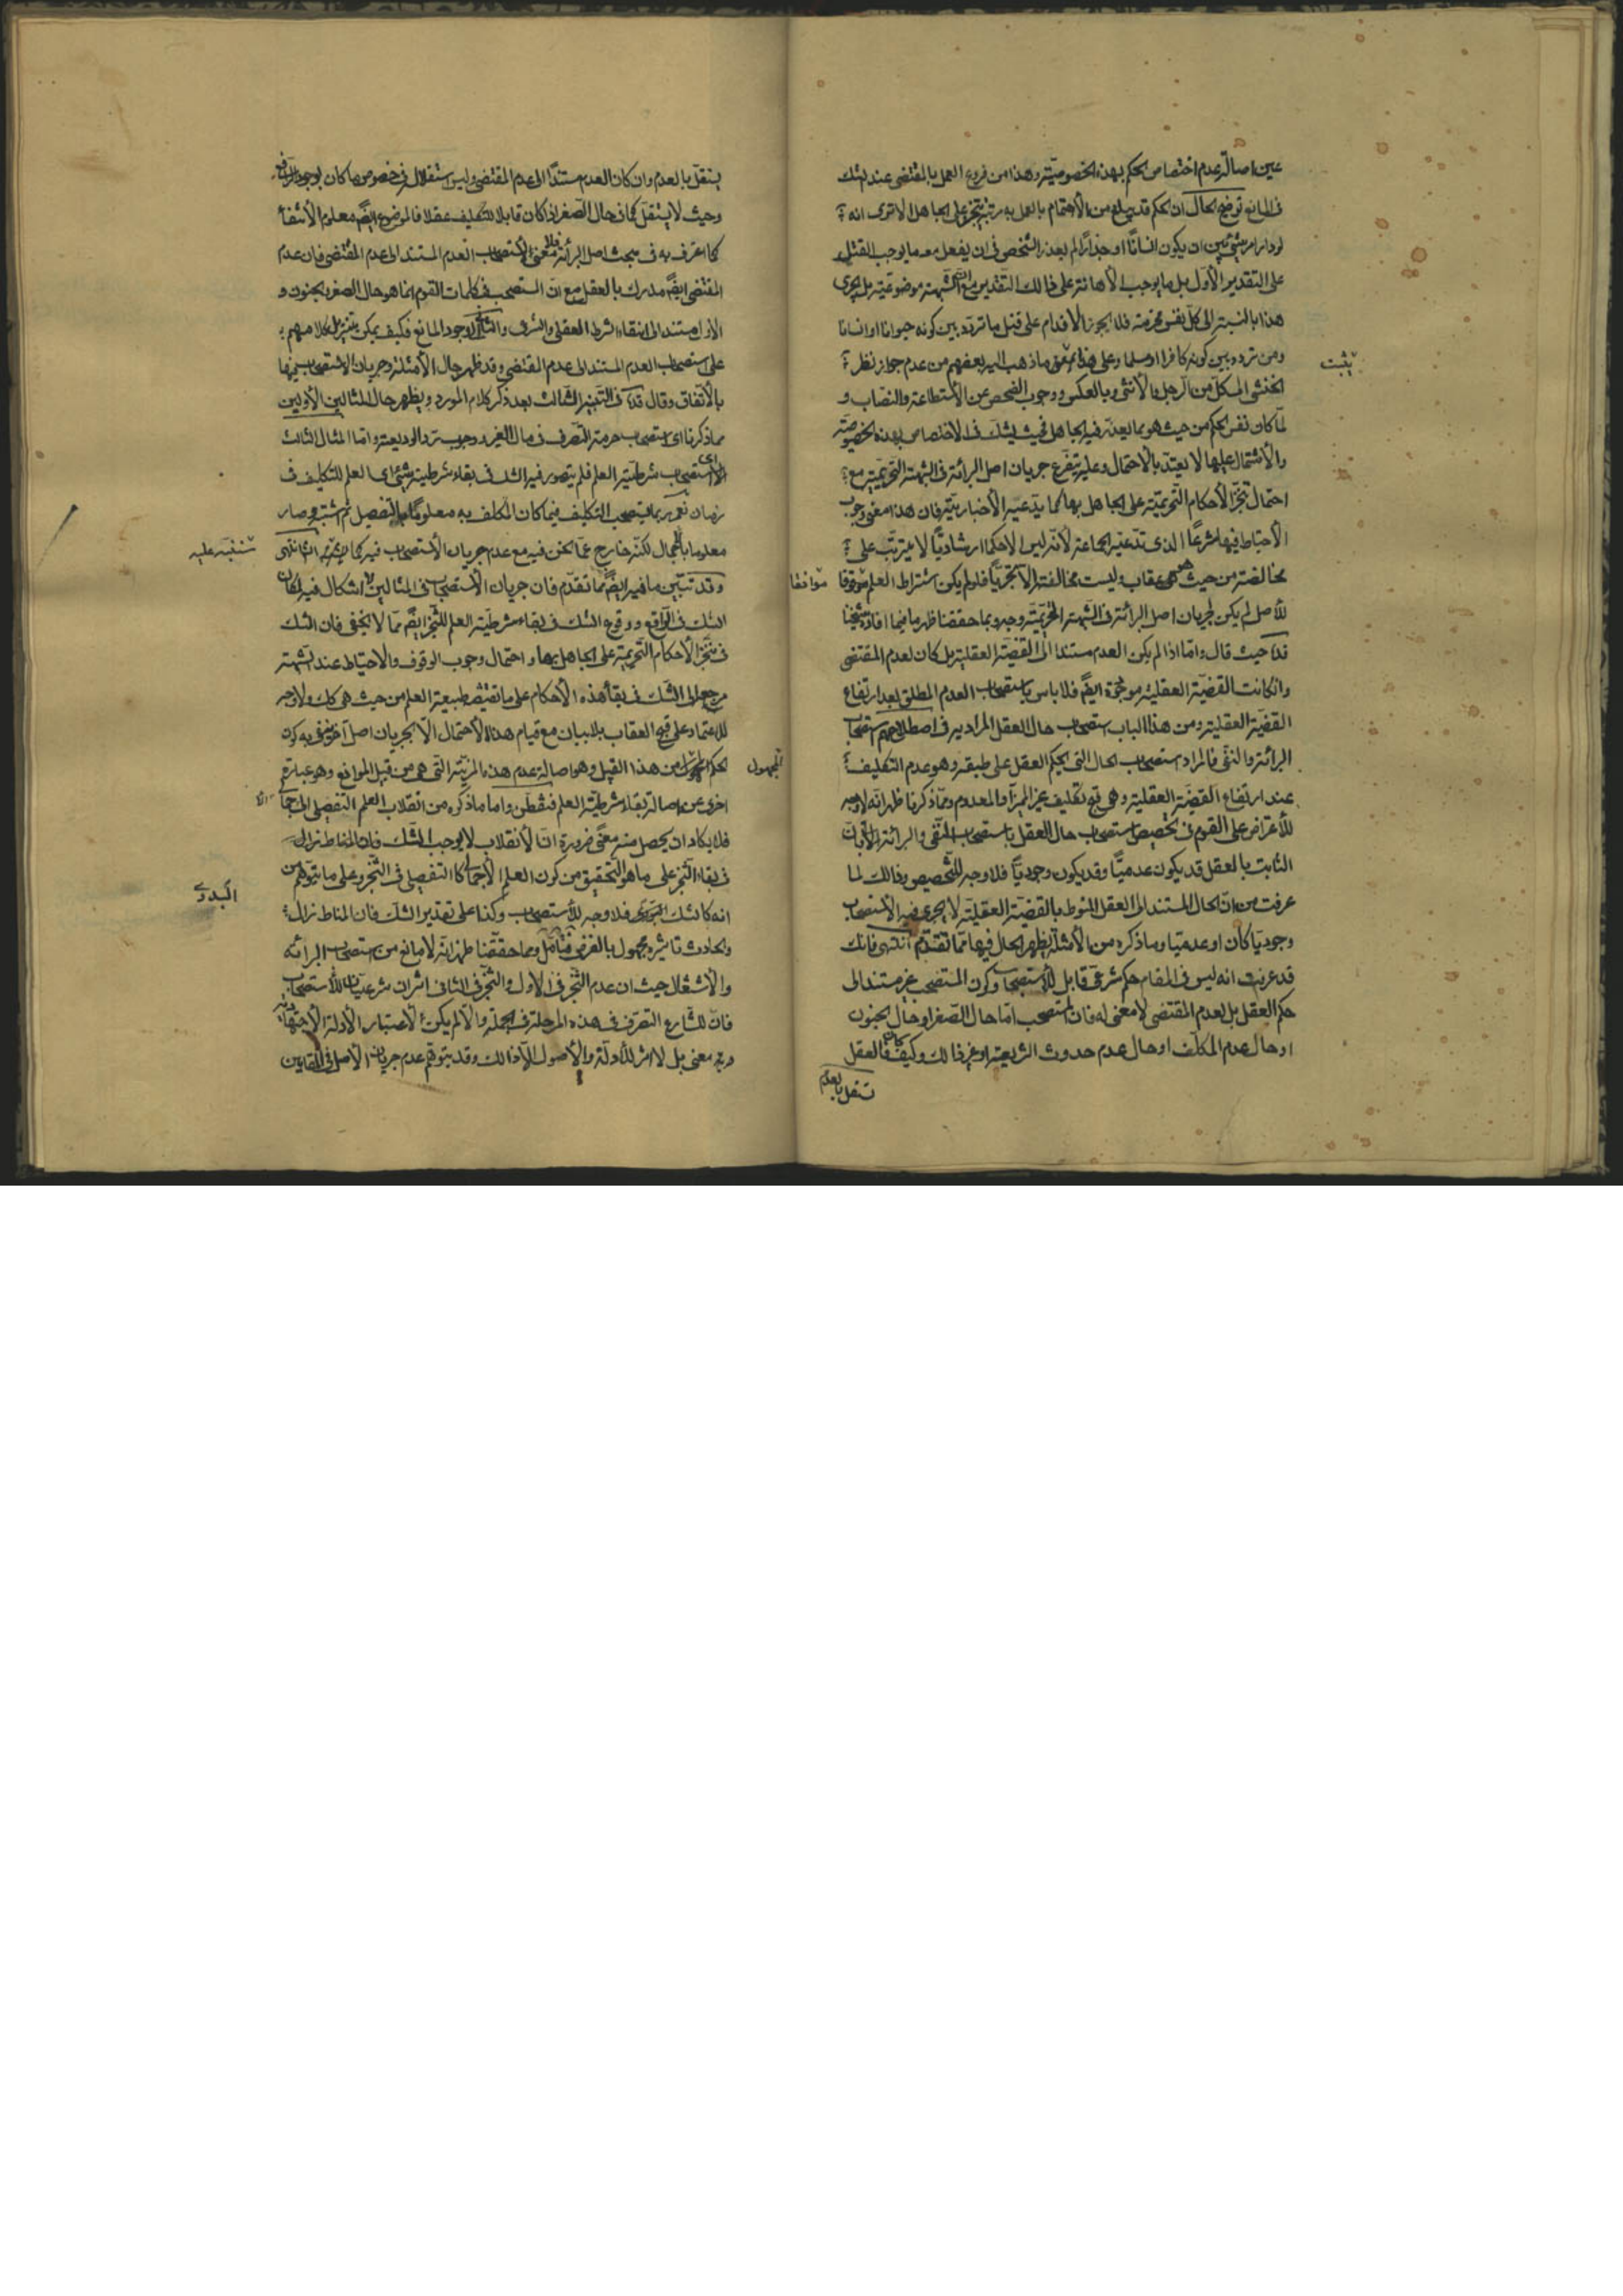 عين اصالة عدم اختصاص الحكم بهذه الخصوصية وهذا من فروع العمل بالمقتضى عند الشك
فى المانع توضيح الحال ان الحكم قد يبلغ من الاهتمام بالعمل به مرتبة يتنجز على الجاهل الا ترى انه
لو دار امر شئ بين ان يكون انسانا او جدارا لم يعذر الشخص فى ان يفعل معه ما يوجب القتل
على التقدير الأول بل ما يوجب الأهانة على ذلك التقدير مع ان الشبهة موضوعية بل يجرى
هذا بالنسبة الى كل نفس محترمة فلا يجوز الاقدام على قتل ما تردد بين كونه حيوانا او انسانا
ومن تردد بين كونه كافرا او مسلما وعلى هذا ما ذهب اليه بعضهم من عدم جواز نظر
يثبت
الخنثى المشكل من الرجل والأنثى وبالعكس ووجوب الفحص عن الأستطاعة والنصاب و
لما كان نفس الحكم من حيث هو مما يعذر فيه الجاهل فحيث يشك فى الاختصاص بهذه الخصوصية
والأشتمال عليها لا يعتد بالاحتمال وعليه يتفرع جريان اصل البرائة فى الشبهة التحريمية مع
احتمال تنجز الأحكام التحريمية على الجاهل بها كما يدعيه الأخبارية فان هذا معنى وجوب
الأحتياط فيها شرعا الذى تدعيه الجماعة لأنه ليس الا حكما ارشاديا لا يترتب على
مخالفته من حيث هى عقاب وليست مخالفته الا تجريا فلو لم يكن اشتراط العلم موقوفا
موافقا
للأصل لم يكن لجريان اصل البرائة فى الشبهة التحريمية وجه وبما حققنا ظهر ما فيما افاده شيخنا
قده حيث قال واما اذا لم يكن العدم مستندا الى القضية العقلية بل كان لعدم المقتضى
وان كانت القضية العقلية موجودة ايضا فلا باس باستصحاب العدم المطلق بعد ارتفاع
القضية العقلية ومن هذا الباب استصحاب حال العقل المراد به فى اصطلاحهم استصحاب
البرائة والنفى فالمراد استصحاب الحال التى يحكم العقل على طبقه وهو عدم التكليف
عند ارتفاع القضية العقلية وهى قبح تكليف غير المميز او المعدوم ومما ذكرنا ظهر انه لا وجه
للأعتراض على القوم فى تخصيص استصحاب حال العقل باستصحاب النفى والبرائة بان
الثابت بالعقل قد يكون عدميا وقد يكون وجوديا فلا وجه للتخصيص وذلك لما
عرفت من ان الحال المستند الى العقل المنوط بالقضية العقلية لا يجرى فيه الأستصحاب
وجوديا كان او عدميا وما ذكره من الأمثلة يظهر الحال فيها مما تقدم انتهى فانك
قد عرفت انه ليس فى المقام حكم شرعى قابل للأستصحاب وكون المستصحب غير مستند الى
حكم العقل بل لعدم المقتضى لا معنى له فان المستصحب اما حال الصغر او حال الجنون
او حال عدم المكلف او حال عدم حدوث الشريعة او غير ذلك وكيف كان فالعقل
تنقل بالعدم
يستقل بالعدم وان كان العدم مستندا الى عدم المقتضى وليس استقلاله فى خصوص ما كان لوجود الرافع
وحيث لا يستقل كما فى حال الصغر اذا كان قابلا للتكليف عقلا فالموضوع ايضا معلوم الأنتفاء
كما اعترف به فى مبحث اصل البرائة فلا معنى لاستصحاب العدم المستند الى عدم المقتضى فان عدم
المقتضى ايضا مدرك بالعقل مع ان المستصحب فى كلمات القوم انما هو حال الصغر والجنون و
الاول مستند الى انتفاء الشرط العقلى والشرعى والثانى لوجود المانع فكيف يمكن تنزيل كلامهم
على استصحاب العدم المستند الى عدم المقتضى وقد ظهر حال الأمثلة وجريان الاستصحاب فيها
بالأتفاق وقال قده فى التنبيه الثالث بعد ذكر كلام المورد ويظهر حال المثالين الأولين
مما ذكرنا اى استصحاب حرمة التصرف فى مال الغير ووجوب رد الوديعة واما المثال الثالث
اى استصحاب شرطية العلم فلم يتصور فيه الشك فى بقاء شرطية شئ اى العلم للتكليف فى
زمان نعم ربما يستصحب التكليف فيما كان المكلف به معلوما بالتفصيل ثم اشتبه وصار
معلوما بالأجمال لكنه خارج عما نحن فيه مع عدم جريان الأستصحاب فيه كما انتهى
سننبه عليه
وقد تبين ما فيه ايضا مما تقدم فان جريان الأستصحاب فى المثالين لا اشكال فيه لمكان
الشك فى الرافع ووقوع الشك فى بقاء شرطية العلم للتنجز ايضا مما لا يخفى فان الشك
فى تنجز الأحكام التحريمية على الجاهل بها واحتمال وجوب الوقوف والاحتياط عند الشبهة
مرجعه الى الشك فى بقاء هذه الأحكام على ما تقتضيه طبيعة العلم من حيث هى كك ولا وجه
للأعتماد على قبح العقاب بلا بيان مع قيام هذا الأحتمال الا بجريان اصل آخر ينفى به كون
الحكم المجهول من هذا القبيل وهو اصالة عدم هذه المزية التى هى من قبيل الموانع وهو عبارة
المجهول
اخرى عن اصالة بقاء شرطية العلم فتفطن واما ما ذكره من انقلاب العلم التفصيلى الى الاجمالى
فلا يكاد ان يحصل منه معنى ضرورة ان الأنقلاب لا يوجب الشك فان المناط تزال
فى بقاء التنجز على ما هو التحقيق من كون العلم الأجمالى كالتفصيلى فى التنجز وعلى ما يتوهم من
انه كالشك البدوى فلا وجه للأستصحاب وكذا على تقدير الشك فان المناط تزال
البدوى
والحادث تاثيره مجهول بالفرض فتأمل ومما حققنا ظهر انه لا مانع من استصحاب البرائة
والاشتغال حيث ان عدم التنجز فى الاول والتنجز فى الثانى اثران شرعيان للأستصحاب
فان للشارع التصرف فى هذه المرحلة فى الجملة والا لم يكن لأعتبار الأدلة الأجتهادية
وجه معنى بل لا اثر للأدلة والأصول الا ذلك وقد يتوهم عدم جريان الأصل فى المقامين